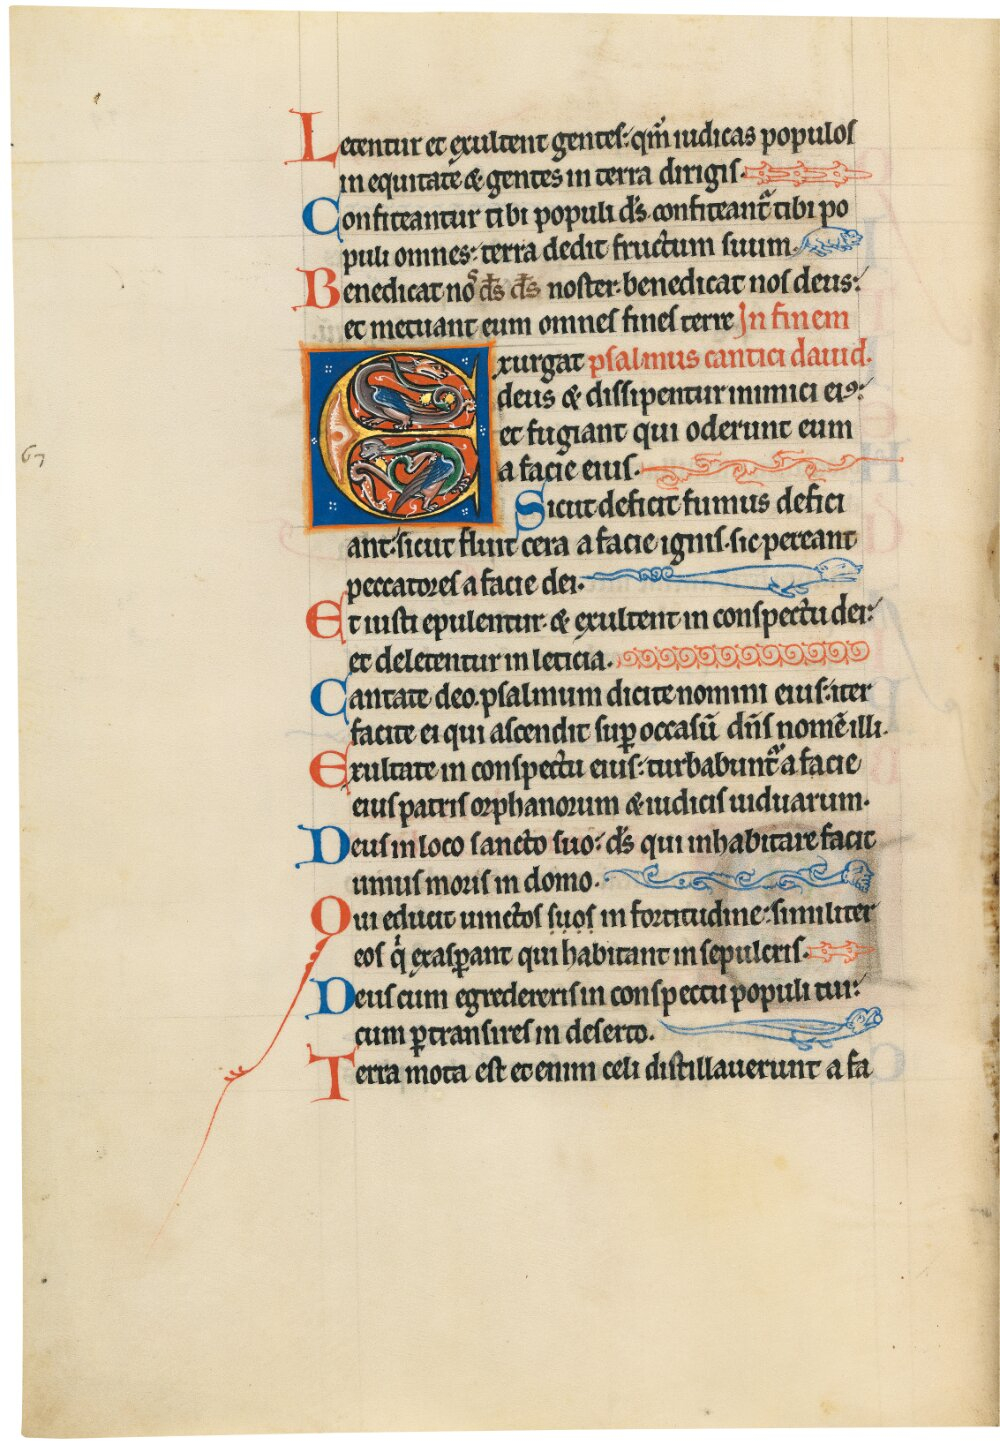 Letentur et exultent gentes: qm̄ iudicas populos
in equitate & gentes in terra dirigis.
Confiteantur tibi populi d̄s confiteant᷑ tibi po
puli omnes: terra dedit fructum suum.
Benedicat nos d̄s d̄s noster. benedicat nos deus:
et metuant eum omnes fines terre In finem
Exurgat psalmus cantici dauid.
deus & dissipentur inimici eiꝯ:
et fugiant qui oderunt eum
a facie eius.
67
Sicut deficit fumus defici
ant: sicut fluit cera a facie ignis. sic pereant
peccatores a facie dei.
Et iusti epulentur. & exultent in conspectu dei:
et deletentur in leticia.
Cantate deo. psalmum dicite nomini eius: iter
facite ei qui ascendit sup̱ occasū dn̄s nomē illi.
Exultate in conspectu eius: turbabunt᷑ a facie
eius patris orphanorum & iudicis uiduarum.
Deus in loco sancto suo: d̄s qui inhabitare facit
unius moris in domo.
Qui educit uinctos suos in fortitudine: similiter
eos q̇ exasꝑant qui habitant in sepulcris.
Deus cum egredereris in conspectu populi tui:
cum ꝑtransires in deserto.
Terra mota est etenim celi distillauerunt a fa